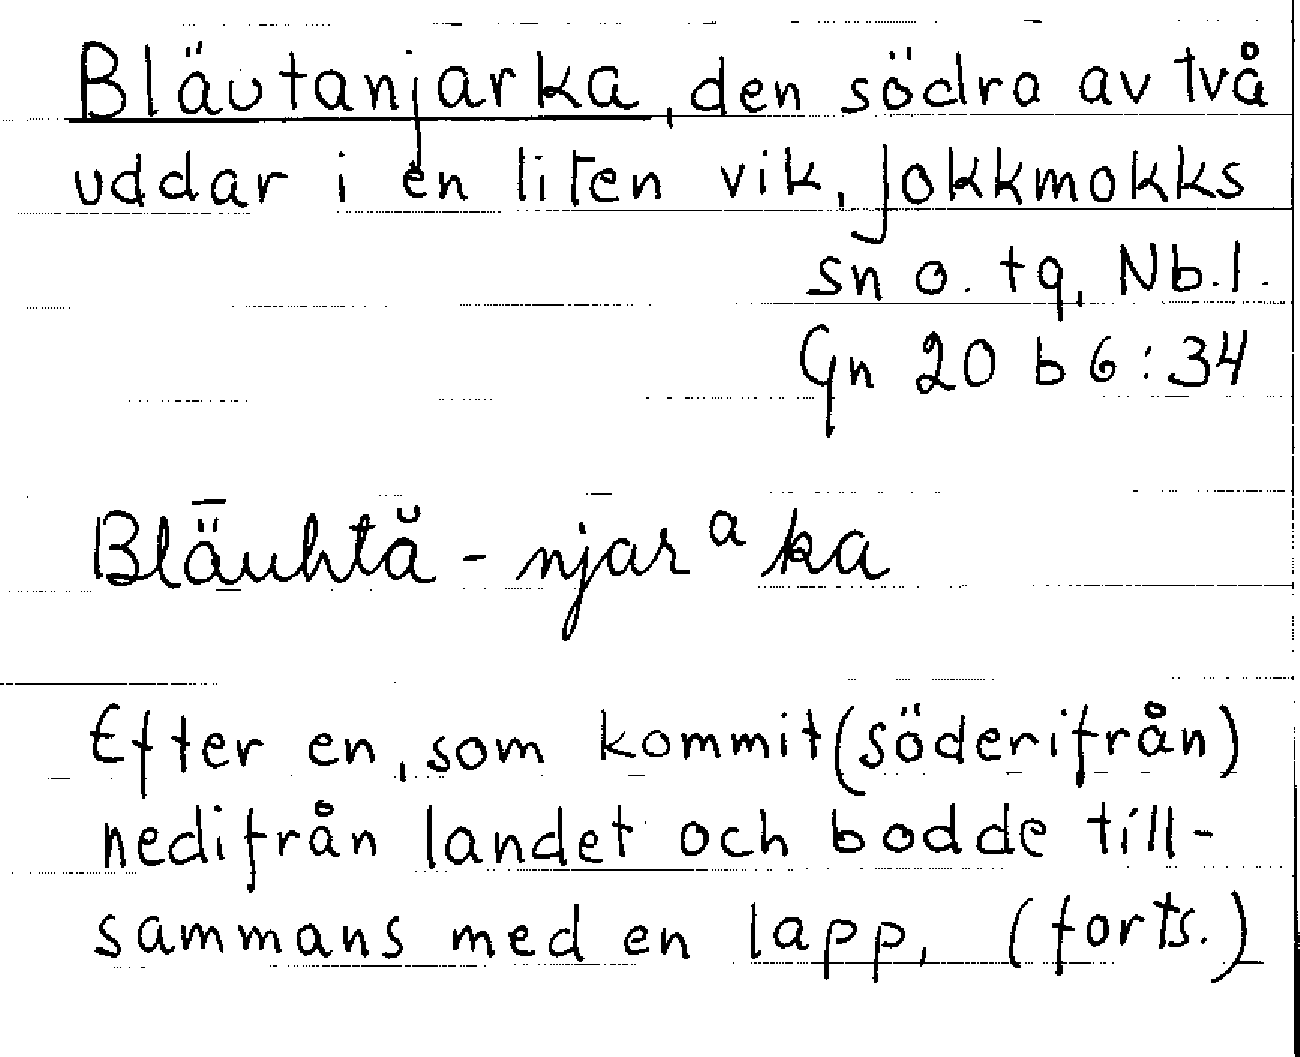 Bläutanjarka, den södra av två
uddar i en liten vik, Jokkmokks
sn o. tg, Nb.l.
Gn 20 b 6:34
Blǟuhtă - njarᵃka
Efter en, som kommit (söderifrån)
nedifrån landet och bodde till-
sammans med en lapp, (forts.)